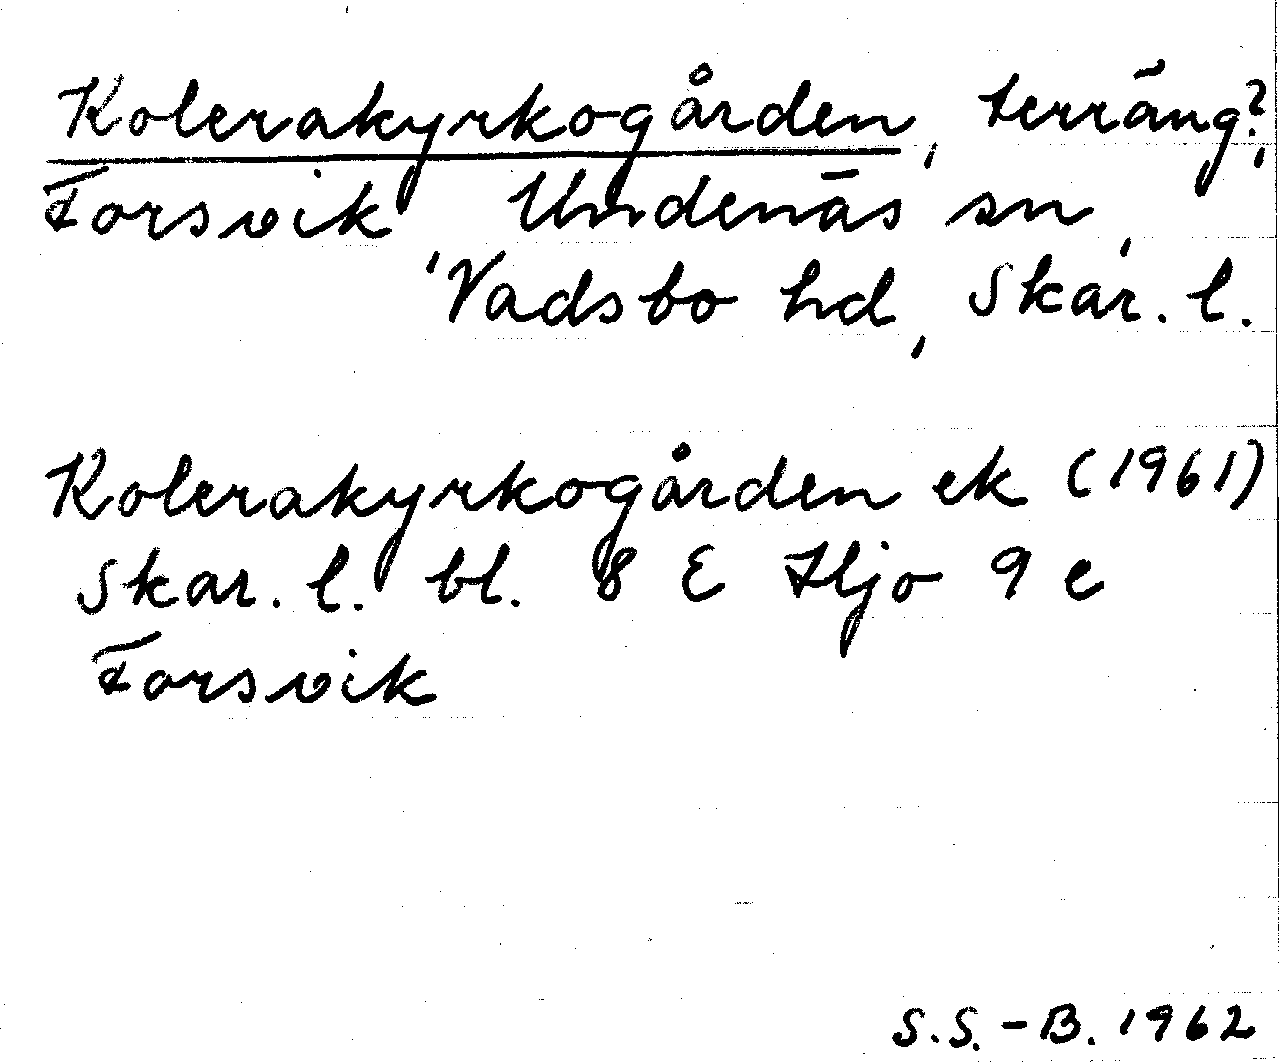 Kolerakyrkogården, terräng?,
Forsvik, Undenäs sn,
Vadsbo hd, Skar. l.
Kolerakyrkogården ek (1961)
Skar. l. bl. 8 E Hjo 9 e
Forsvik
S.S.-B. 1962